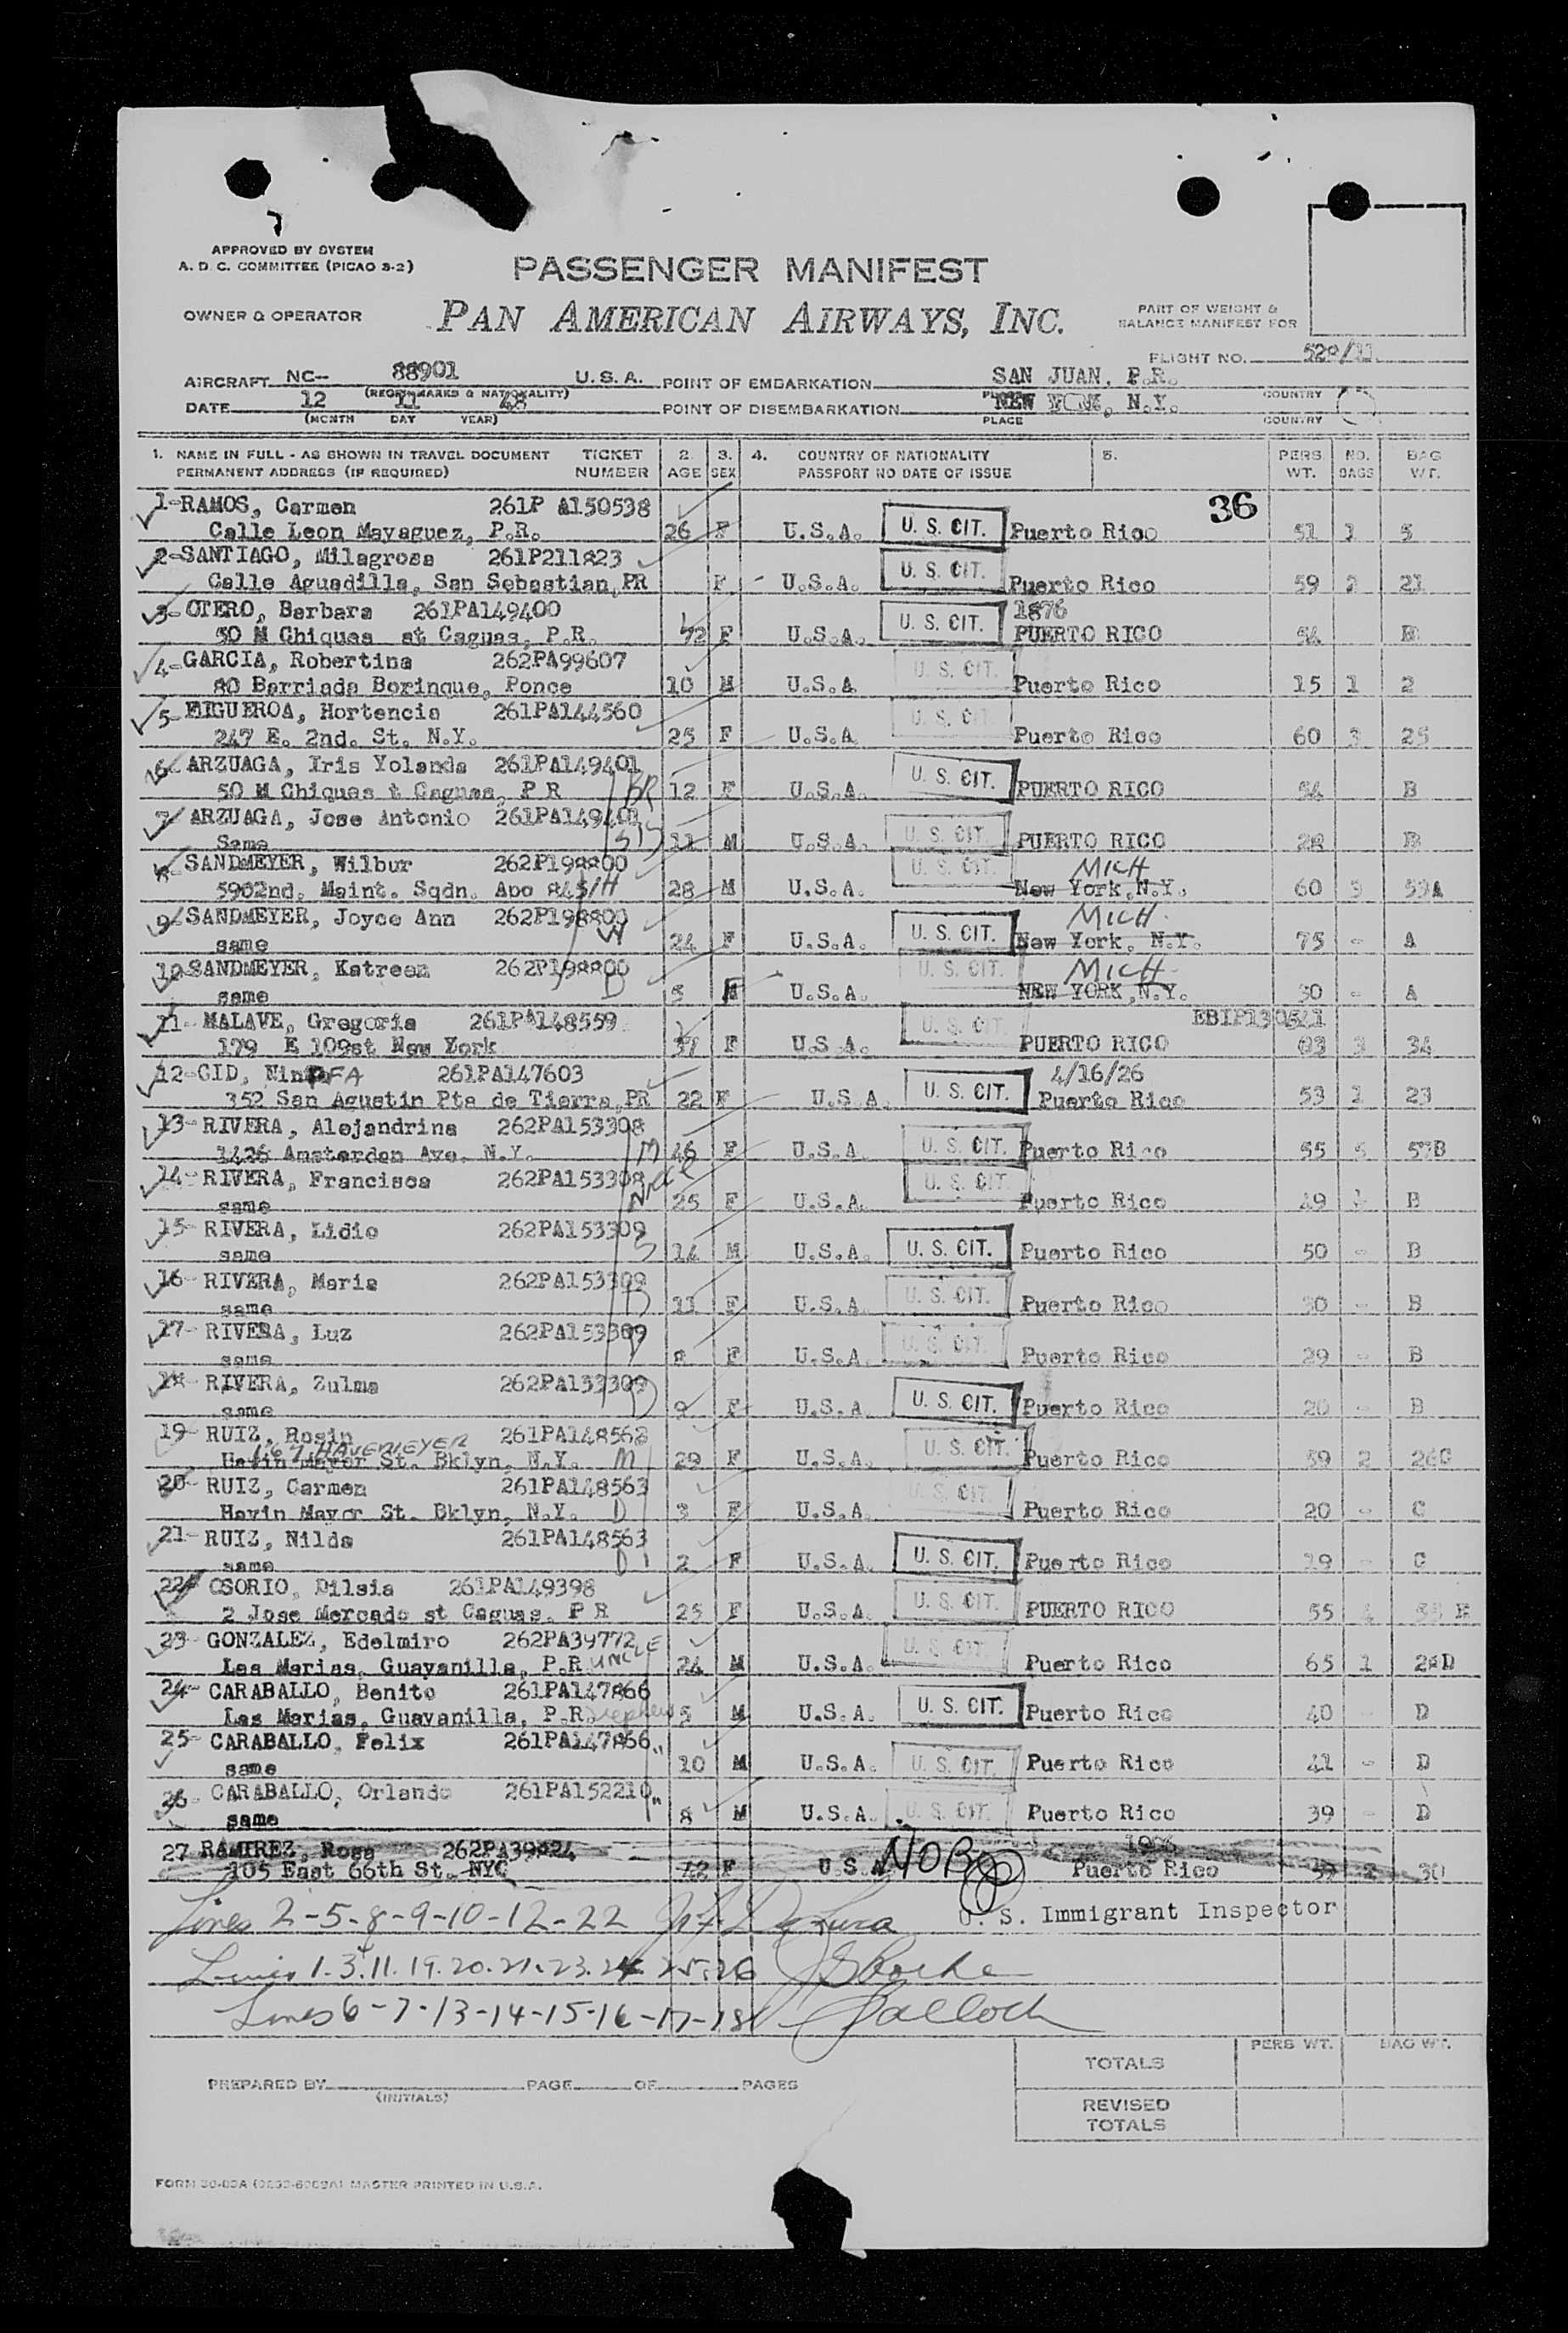 APPROVED BY SYSTEM
A. D. C. COMMITTEE (PICAO 3-2)
PASSENGER MANIFEST
OWNER & OPERATOR
PAN AMERICAN AIRWAYS, INC.
PART OF WEIGHT &
BALANCE MANIFEST FOR
FLIGHT NO.
AIRCRAFT NC-- 88901 U.S.A. POINT OF EMBARKATION SAN JUAN, P.R.
(REGIS. MARKS & NATIONALITY) PLACE COUNTRY
DATE 12 11 48 POINT OF DISEMBARKATION NEW YORK, N.Y.
(MONTH DAY YEAR) PLACE COUNTRY
1. NAME IN FULL - AS SHOWN IN TRAVEL DOCUMENT TICKET 2. 3. 4. COUNTRY OF NATIONALITY 5. PERS. NO. BAG
PERMANENT ADDRESS (IF REQUIRED) NUMBER AGE SEX PASSPORT NO DATE OF ISSUE WT. BAGS WT.
1-RAMOS, Carmen 261P A150538 36
Calle Leon Mayaguez, P.R. 26 F U.S.A. U. S. CIT. Puerto Rico 51 1 5
2-SANTIAGO, Milagrosa 261P211823
Calle Aguadilla, San Sebastian,PR F - U.S.A. U. S. CIT. Puerto Rico 59 2 21
3-OTERO, Barbara 261PA149400 1876
50 M Chiques st Caguas, P.R. 72 F U.S.A. U. S. CIT. PUERTO RICO 54 B
4-GARCIA, Robertina 262PA99607
80 Barriada Borinque, Ponce 10 M U.S.A U. S. CIT. Puerto Rico 15 1 2
5-FIGUEROA, Hortencia 261PA144560
247 E. 2nd. St. N.Y. 25 F U.S.A U. S. CIT. Puerto Rico 60 3 25
6-ARZUAGA, Iris Yolanda 261PA149401
50 M Chiques t Caguas, P R BR 12 F U.S.A. U. S. CIT. PUERTO RICO 54 B
7-ARZUAGA, Jose Antonio 261PA149401
Same SIS 11 M U.S.A. U. S. CIT. PUERTO RICO 28 B
8-SANDMEYER, Wilbur 262P198800 MICH
5902nd. Maint. Sqdn. Apo 845 H 28 M U.S.A. U. S. CIT. New York,N.Y. 60 5 59A
9-SANDMEYER, Joyce Ann 262P198800 MICH.
same W 24 F U.S.A. U. S. CIT. New York, N.Y. 75 - A
10-SANDMEYER, Katreen 262P198800 MICH
same D 5 F U.S.A. U. S. CIT. NEW YORK,N.Y. 30 - A
11-MALAVE, Gregoria 261PA148559
179 E 109st New York 37 F U.S.A. U. S. CIT. PUERTO RICO 3 34
12-CID, Ninfa 261PA147603 4/16/26
352 San Agustin Pta de Tierra,PR 22 F U.S.A. U. S. CIT. Puerto Rico 53 1 23
13-RIVERA, Alejandrina 262PA153308
1426 Amsterdan Ave. N.Y. M 46 F U.S.A. U. S. CIT. Puerto Rico 55 5 57B
14-RIVERA, Francisca 262PA153308
same NIECE 25 F U.S.A. U. S. CIT. Puerto Rico 49 1 B
15-RIVERA, Lidio 262PA153309
same S 14 M U.S.A. U. S. CIT. Puerto Rico 50 - B
16-RIVERA, Maria 262PA153309
same D 11 F U.S.A. U. S. CIT. Puerto Rico 30 - B
17-RIVERA, Luz 262PA153309
same D 8 F U.S.A. U. S. CIT. Puerto Rico 29 - B
18-RIVERA, Zulma 262PA153309
same D 9 F U.S.A. U. S. CIT. Puerto Rico 20 - B
19-RUIZ, Rosin 261PA148562
167 HAVEMEYER
Havin Mayor St. Bklyn, N.Y. M 29 F U.S.A. U. S. CIT. Puerto Rico 59 2 26C
20-RUIZ, Carmen 261PA148563
Havin Mayor St. Bklyn, N.Y. D 3 F U.S.A. U. S. CIT. Puerto Rico 20 - C
21-RUIZ, Nilda 261PA148563
same D 2 F U.S.A. U. S. CIT. Puerto Rico 19 - C
22-OSORIO, Dilsia 261PA149398
2 Jose Mercado st Caguas, P R 25 F U.S.A. U. S. CIT. PUERTO RICO 55
23-GONZALEZ, Edelmiro 262PA39772
Las Marias, Guayanilla, P.R. UNCLE 24 M U.S.A. U. S. CIT. Puerto Rico 65 1 28D
24-CARABALLO, Benito 261PA147866
Las Marias, Guayanilla, P.R. Nephew 5 M U.S.A. U. S. CIT. Puerto Rico 40 - D
25-CARABALLO, Felix 261PA147866 "
same 10 M U.S.A. U. S. CIT. Puerto Rico 41 - D
26-CARABALLO, Orlando 261PA152210 "
same 8 M U.S.A. U. S. CIT. Puerto Rico 39 - D
27 RAMIREZ, Rosa 262PA39824
105 East 66th St. NYC 42 F U.S.A NOB Puerto Rico 59 2 30
Lines 2-5-8-9-10-12-22 U. S. Immigrant Inspector
Lines 1.3.11.19.20.21.23.24 25.26
Lines 6-7-13-14-15-16-17-18
TOTALS PERS WT. BAG WT.
PREPARED BY PAGE OF PAGES
(INITIALS)
REVISED
TOTALS
MASTER PRINTED IN U.S.A.